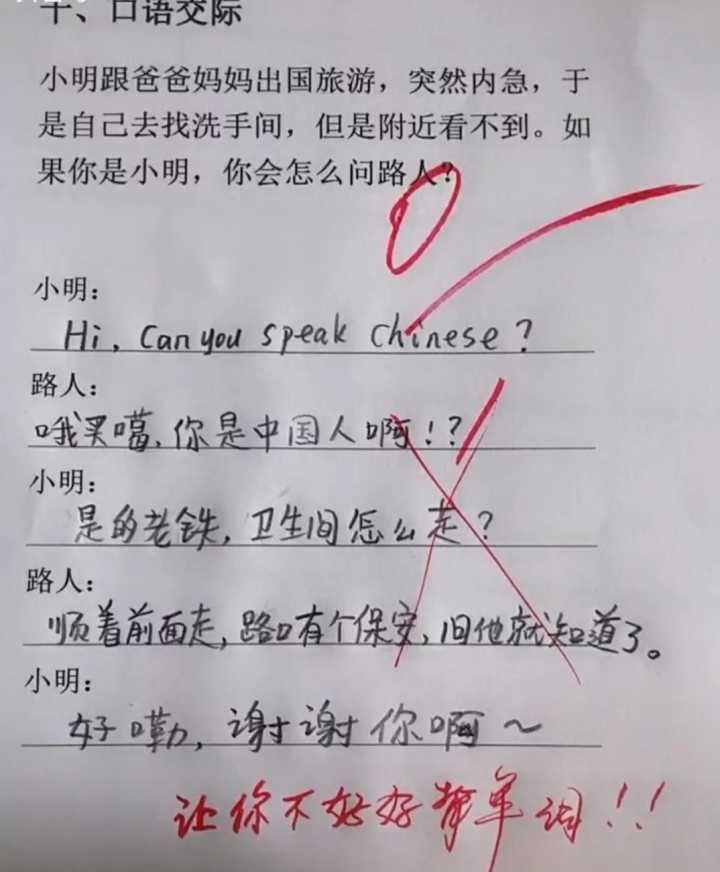 十、口语交际
小明跟爸爸妈妈出国旅游，突然内急，于
是自己去找洗手间，但是附近看不到。如
果你是小明，你会怎么问路人？
小明：
Hi, Can you speak Chinese?
路人：
哦买噶，你是中国人啊！？
小明：
是的老铁，卫生间怎么走？
路人：
顺着前面走，路口有个保安，问他就知道了。
小明：
好嘞，谢谢你啊～
让你不好好背单词！！